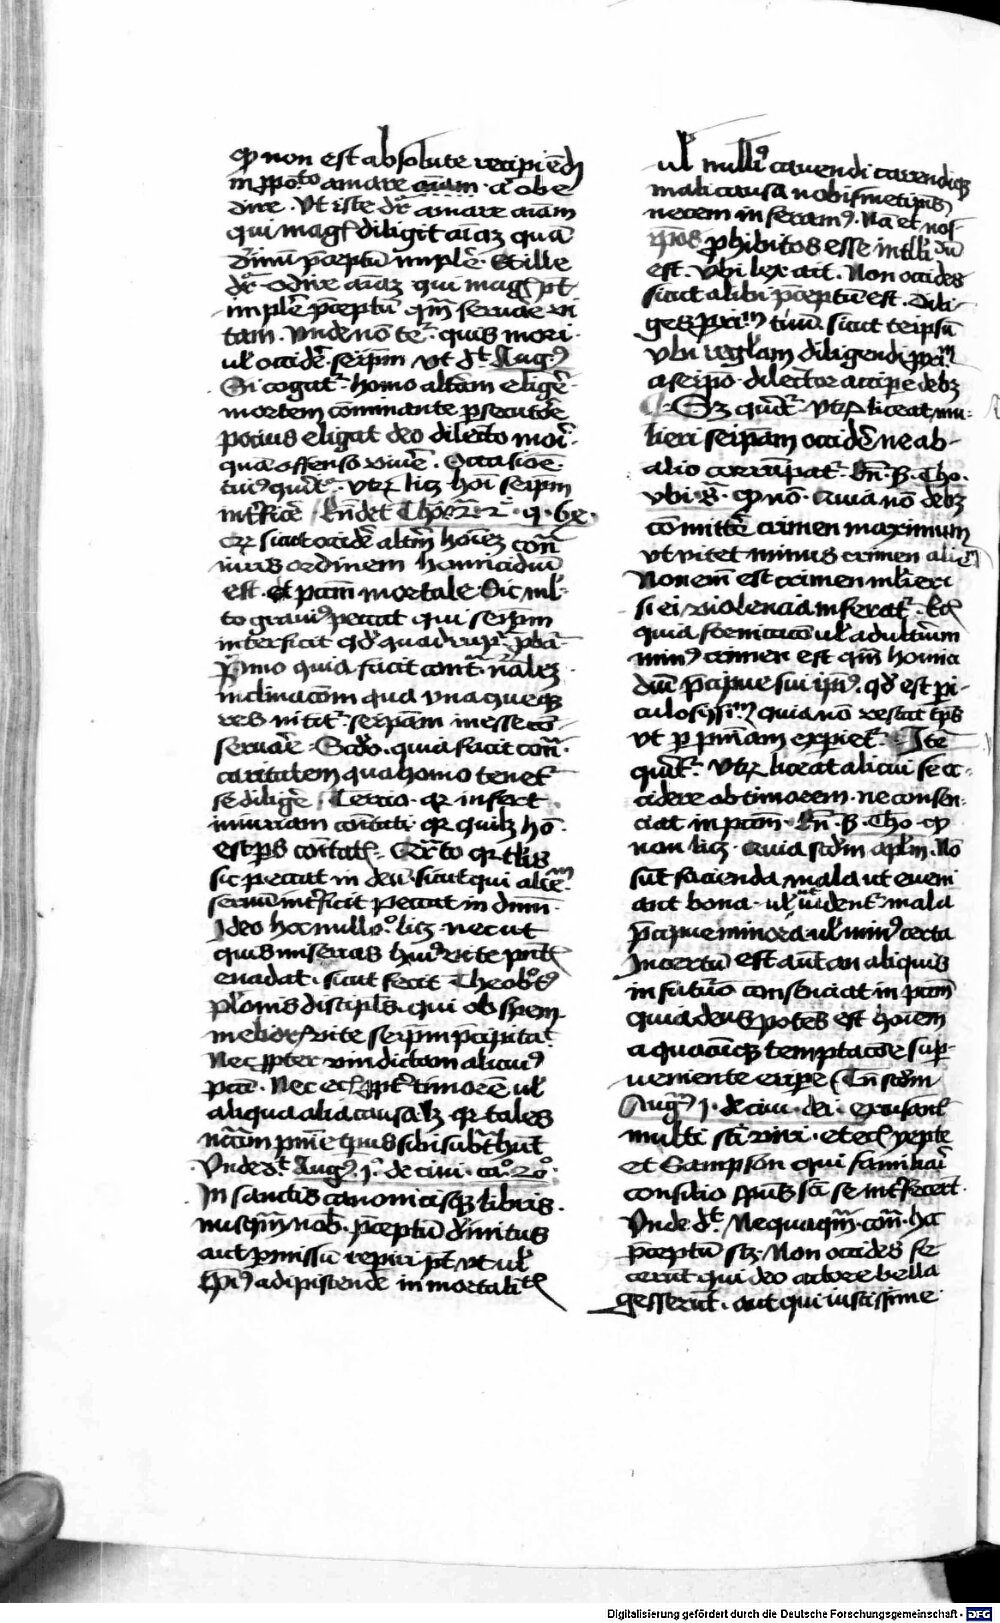 qp non est absolute recipiend
in ppoto amare aiam · a' obe
dire · Vt iste dr amare aiam
qui mag diligit aiaz qua
diuinu pceptu imple · Et ille
dr odire aiaz qui mag pt
imple pceptu qm seruare vi
tam · Vnde no te · quis mori
ul occide seipm vt dt Aug9
Si cogat homo altam elige
mortem cominante psecutoe
pocius eligat deo dilecto mori
qua offenso viuere · Occasioe
tui9 querit · vtru licz hoi seipm
int'fice · Rndet Tho
q sicut occide altm hoiez cont
iuris ordinem homicidiu
est et pctm mortale · Sic ml
to graui9 peccat qui seipm
interficit qd quadrupl pbat
Primo quia facit cont nalez
inclinacom qua vnaqueq
res nitit seipam in esse con
seruare · Scdo · quia facit cont
caritatem qua homo tenet
se dilige · Tercio · qr infert
iniuriam coitati qr quilz ho
est ps coitatis · Qrto qr tlis
sic peccat in deu sicut qui alie
seruu int'ficit peccat in dnm
Ideo hoc nullo licz nec ut
quis miserias hui9 vite pnt
euadat · sicut fecit Theobt9
platonis discipls · qui ob spem
melior vite seipm pcipitat
Nec ppter vindictam alicui9
pcti · Nec ec ppt timore ul
aliqua alia causa lz qr tales
nciam pnie tpus sibi subthut
Vnde dt Aug9 j° de ciui · ca° 20°
In sanctis canonicisqz libris
nusqm nob pceptu diuinitus
aut pmissu repiri pt vt ul
ipi9 adipiscende inmortalit
ul nulli9 cauendi carendiqz
mali causa nobismetipis
necem inferam9 · Na et nos
ipos phibitos esse intlli du
est · Vbi lex ait · Non occides
sicut alibi pceptu est · Dili
ges primu tuu sicut teipsu
Vbi reglam diligendi pxi
a seipo dilector accipe debz
Sz querit · Vtru liceat mu
lieri seipam occide ne ab
alio corrupat · Rn · B · Tho ·
vbi s · qp no · Quia no debz
comitte crimen maximum
vt vitet minus crimen alie
Non em est crimen mulieri
si ei violencia inferat · Ec
quia fornicaco ul adulteriu
min9 crimen est qm homici
diu pcipue sui ipi9 · qd est pi
culosissi quia no restat tps
vt p pniam expiet · Ite
querit · Vtru liceat alicui se oc
cidere ob timorem · ne consen
ciat in pctm · Rn · B · Tho · qp
non licz · Quia scdm aplm · No
sut facienda mala ut eueni
ant bona · ul ut vident mala
pcipue minora ul min9 certa
Incertu est aut an aliquis
in futuro consenciat in pctm
quia deus potes est hoiem
a quacuqz temptacoe sup
ueniente eripe · Tn scdm
Aug9 j · de ciui · dei · excusant
multi sti viri · et ec yepte
et Sampson qui familiari
consilio spus sci se int'fecert
Vnde dt · Nequaqm cont hc
pceptu scz · Non occides fe
cerut qui deo auctore bella
gesserut · aut qui iustissime
Digitalisierung gefördert durch die Deutsche Forschungsgemeinschaft - DFG